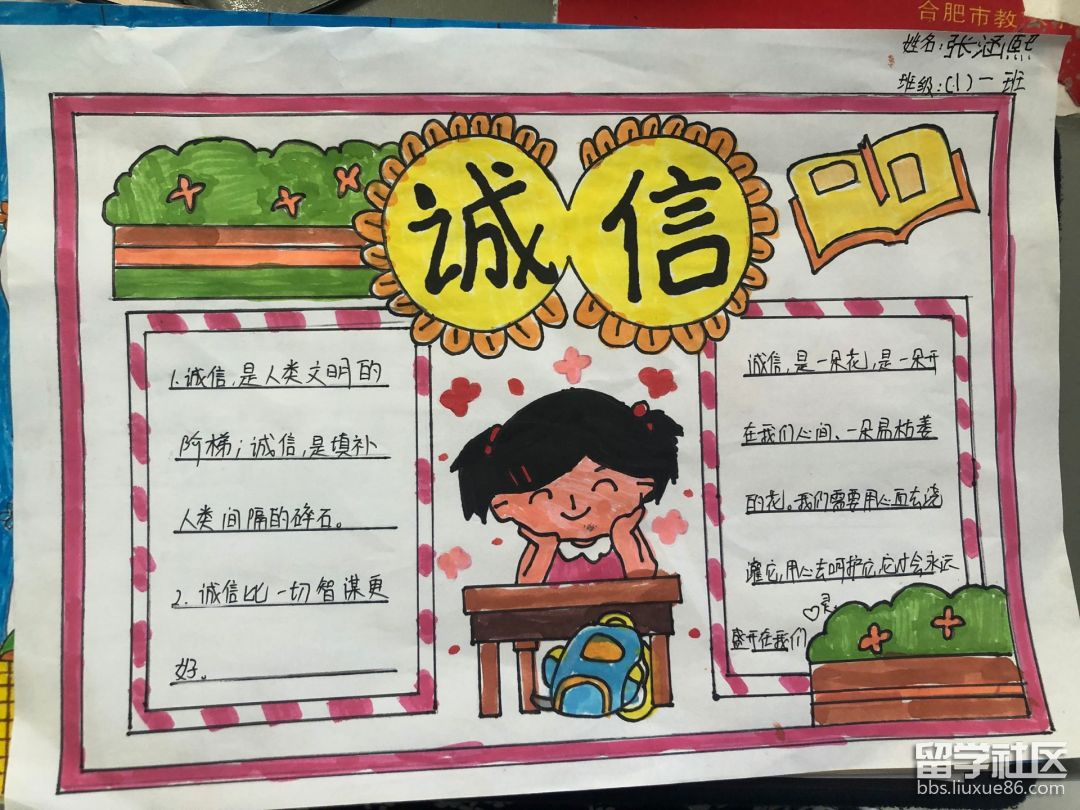 合肥市教
姓名:张涵熙
班级:(1)一班
诚信
1.诚信,是人类文明的
阶梯;诚信,是填补
人类间隔的碎石。
2.诚信比一切智谋更
好。
诚信,是一朵花,是一朵开
在我们心间、一朵易枯萎
的花。我们需要用心血去浇
灌它,用心去呵护它,它才会永远
盛开在我们♡灵。
留学社区
bbs.liuxue86.com